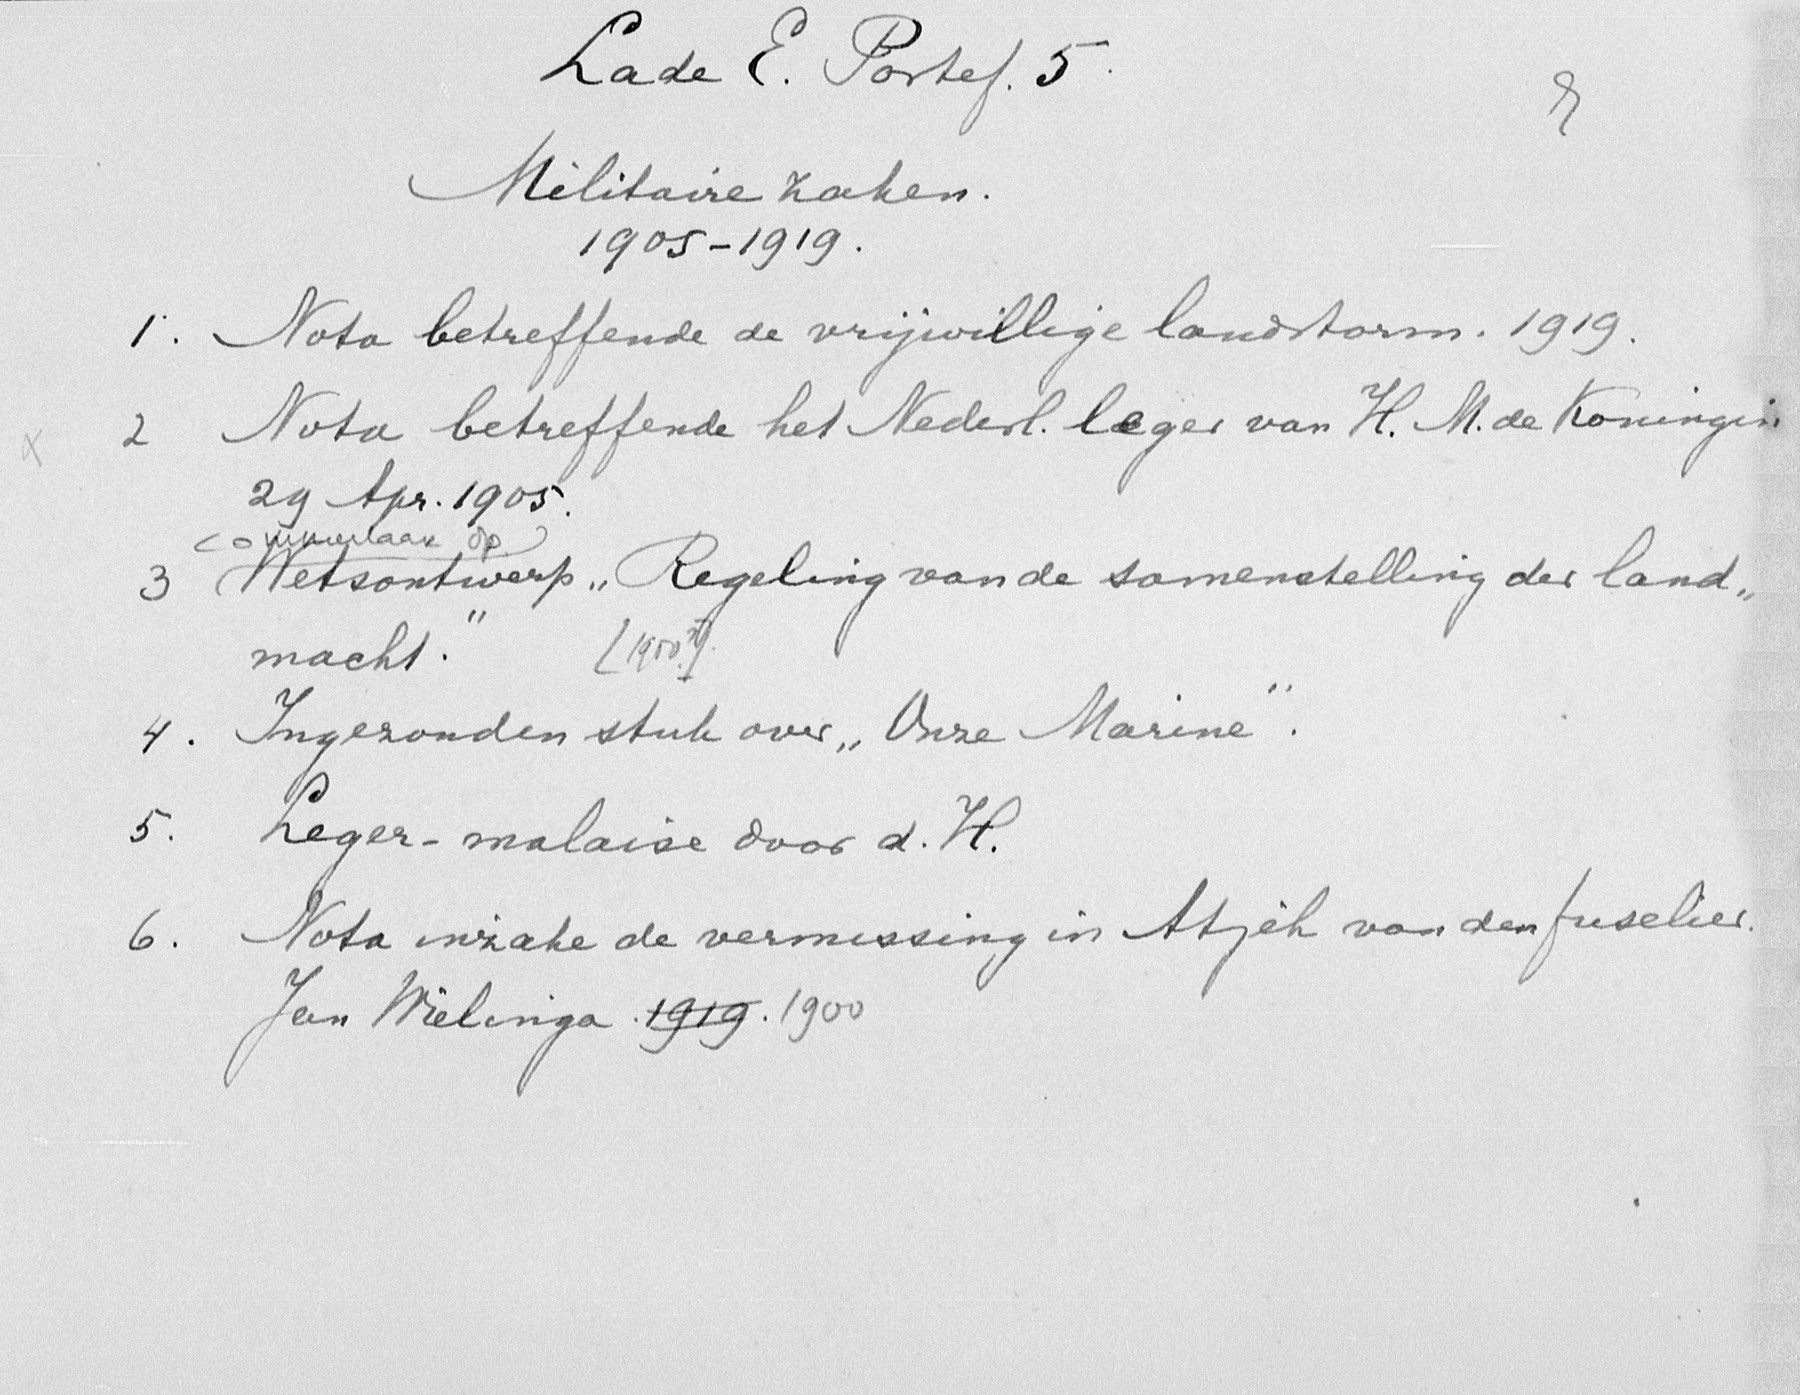 Lade E. Portef. 5.
Militaire zaken.
1905-1919.
1. Nota betreffende de vrijwillige landstorm. 1919.
2 Nota betreffende het Nederl. leger van H. M. de Koningin
29 Apr. 1905.
commentaar op
3 Wetsontwerp „Regeling van de samenstelling der land„
macht."
4. Ingezonden stuk over „Onze Marine".
5. Leger-malaise door d. H.
6. Nota inzake de vermissing in Atjeh van den fuselier.
Jan Wielinga. 1919. 1900